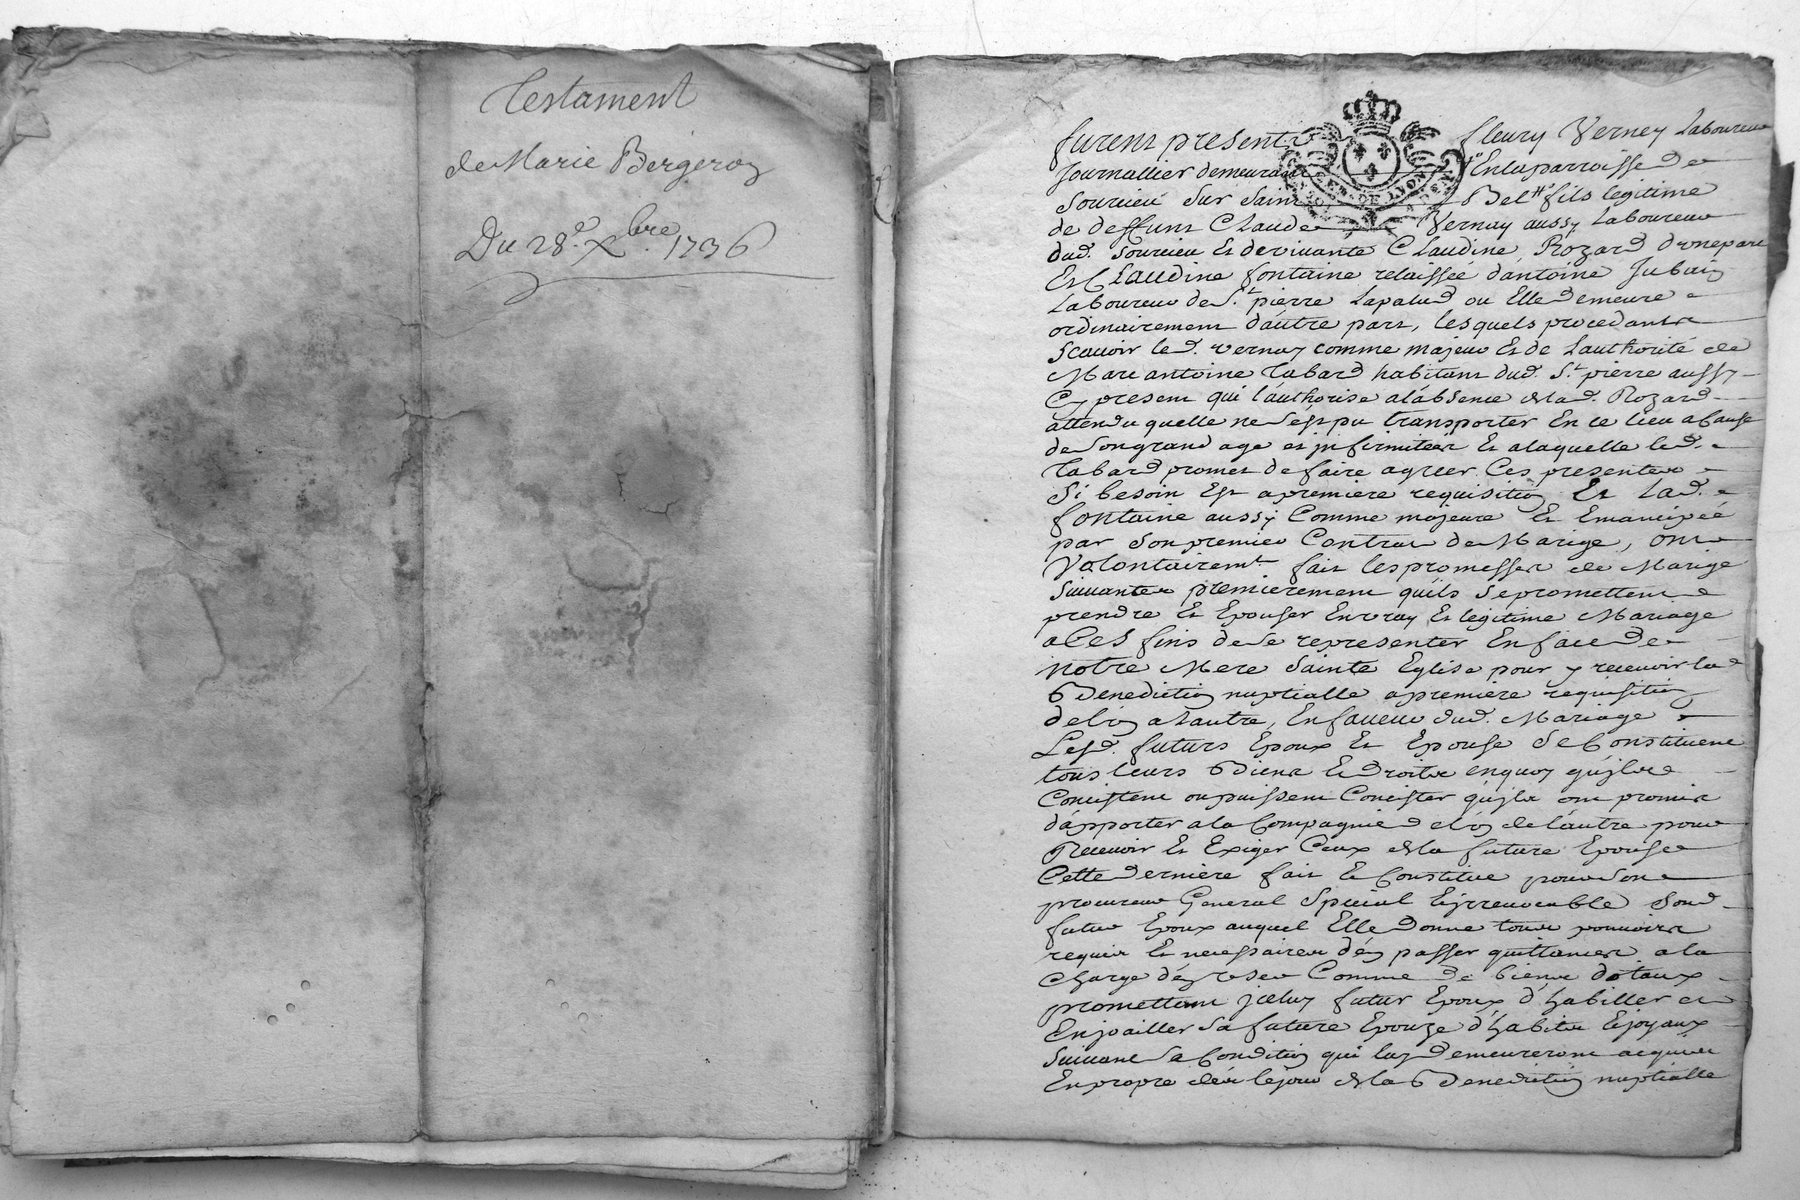 Testament
de Marie Bergeron
Du 28.e Xbre 1736
furent presents fleury Verney Laboureur
Journallier demeurant En la parroisse de
Sourcieu Sur Saint Bel fils legitime
de deffunt Claude Vernay aussy Laboureur
dud. Sourcieu Et de vivante Claudine Rozard d'vne part
Et Claudine fontaine relaissée d'antoine Jubain
Laboureur de St. pierre Lapalud ou Elle demeure
ordinairement d'autre part, lesquels procedants
Scavoir led. vernay comme majeur Et de Lauthorité de
Marc antoine Tabard habitant dud. St. pierre aussy
Cy present qui l'authorise a l'absence de lad. Rozard
attendu quelle ne s'est pu transporter En ce lieu a Cause
de Son grand age et jnfirmitées Et a laquelle led.
Tabard promet de faire agreer Ces presentes
Si besoin Est a premiere requisition Et Lad.
fontaine aussy Comme majeure Et Emancipée
par Son premier Contrat de Marige, ont
Volontairemt. fait les promesses de Marige
Suivantes premierement qu'ils Se promettent
prendre Et Epouser En vray Et legitime Mariage
a Ces fins de Se representer En face de
Notre Mere Sainte Eglise pour y recevoir la
Benediction nuptialle a premiere requisition
de l'vn a l'autre, En faveur dud. Mariage
Lesd. futurs Epoux Et Epouse Se Constituent
tous leurs Biens Et droits en quoy qu'jls
Concistent ou puissent Concister qu'jls ont promis
d'apporter a la Compagnie de l'vn de l'autre pour
Recevoir Et Exiger Ceux de la future Epouse
Cette derniere fait Et Constitue pour Son
procureur General Special Et jrrevocable Sond.
futur Epoux auquel Elle donne tous pouvoirs
requis Et necessaires d'en passer quittances a la
Charge d'en vser Comme de biens dotaux
promettant jceluy futur Epoux d'habiller et
Enjoailler Sa future Epouze d'habits Et joyaux
Suivant Sa Condition qui luy demeureront acquis
En propre dès le jour de la Benediction nuptialle